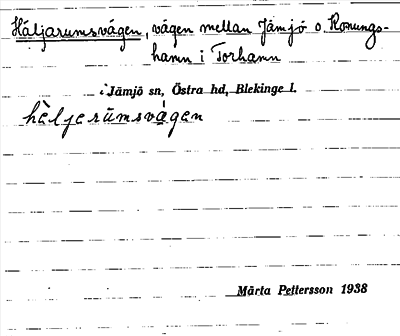 Häljarumsvägen, vägen mellan Jämjö o. Konungs-
hamn i Torhamn
i Jämjö sn, Östra hd, Blekinge l.
hèljerumsvágen
Märta Pettersson 1938